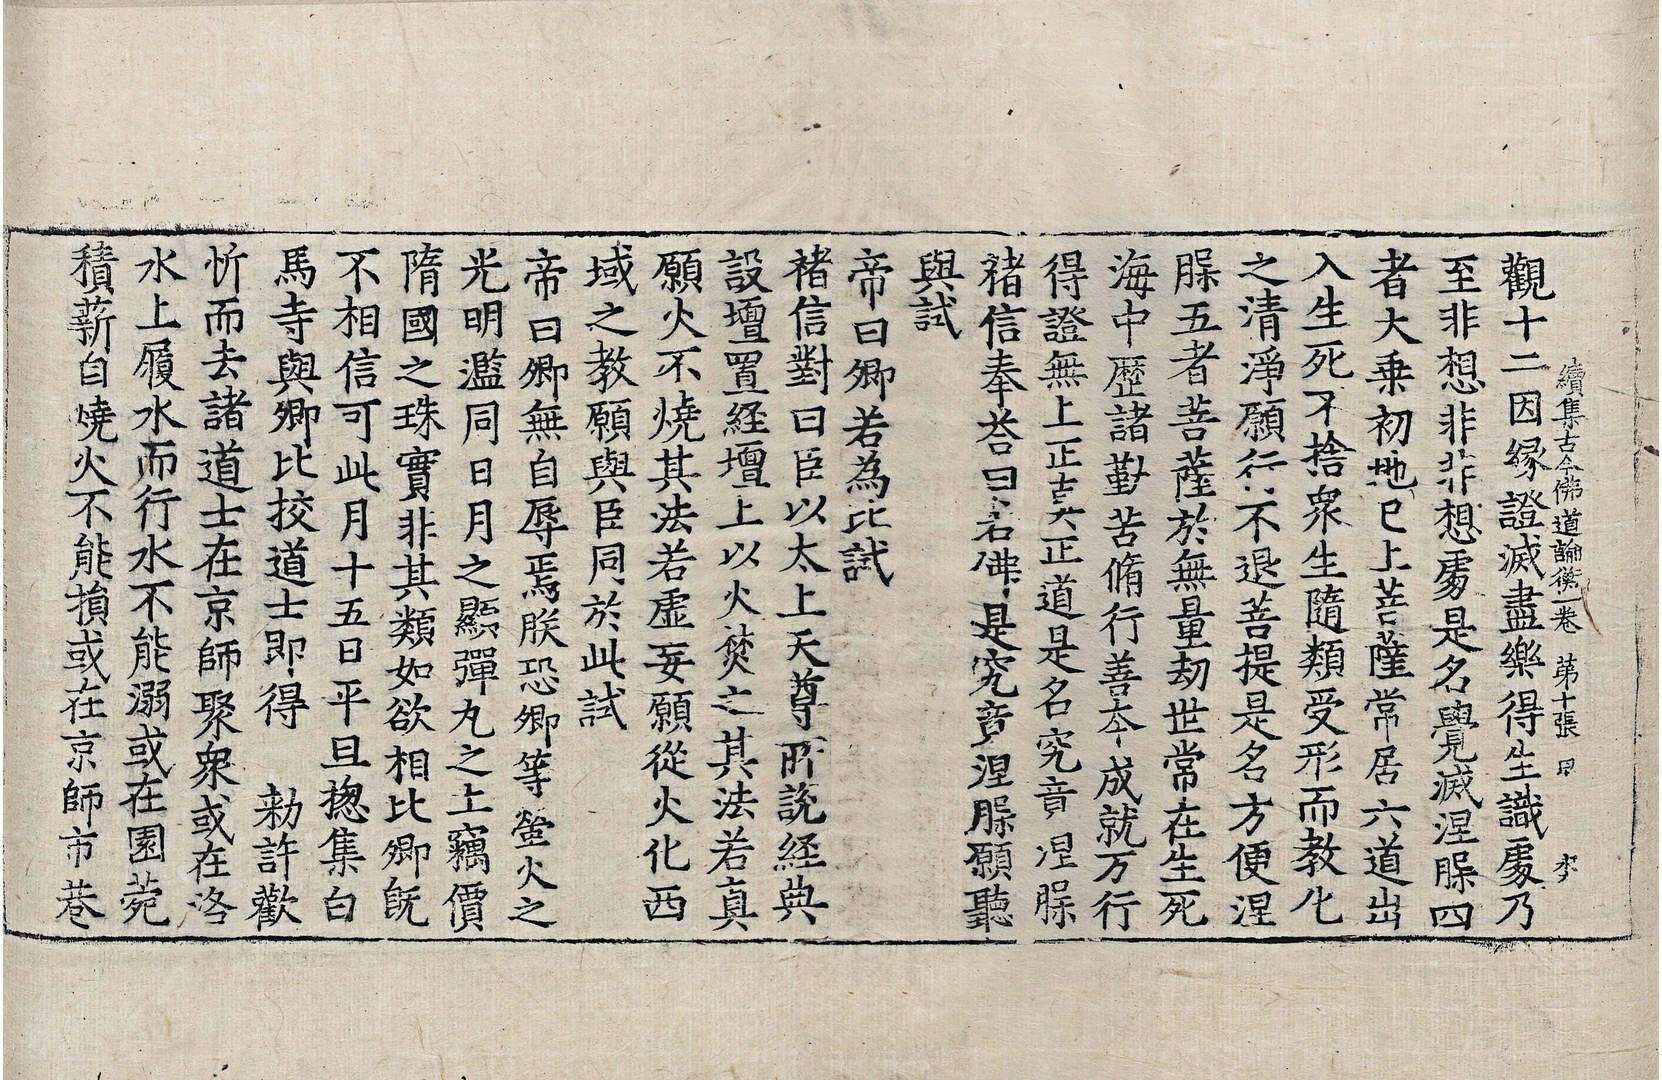 續集古今佛道論衡一卷 苐十張 㞋 李
觀十二因緣證滅盡樂得生識處乃
至非想非非想處是名覺滅涅槃四
者大乗初地已上菩薩常居六道出
入生死不捨衆生隨類受形而教化
之清淨願行不退菩提是名方便涅
槃五者菩薩於無量劫世常在生死
海中歷諸勤苦脩行善夲成就万行
得證無上正真正道是名究竟涅槃
褚信奉荅曰若佛是究竟涅槃願聽
與試
帝曰卿若為比試
褚信對曰臣以太上天尊所說経典
設壇置経壇上以火焚之其法若真
願火不燒其法若虛妄願從火化西
域之教願與臣同於此試
帝曰卿無自辱焉朕恐卿等螢火之
光明濫同日月之顯彈丸之上竊價
隋國之珠寶非其類如欲相比卿旣
不相信可此月十五日平旦揔集白
馬寺與卿比挍道士即得 勑許歡
忻而去諸道士在京師聚衆或在洛
水上履水而行水不能溺或在園菀
積薪自燒火不能損或在京師市巷